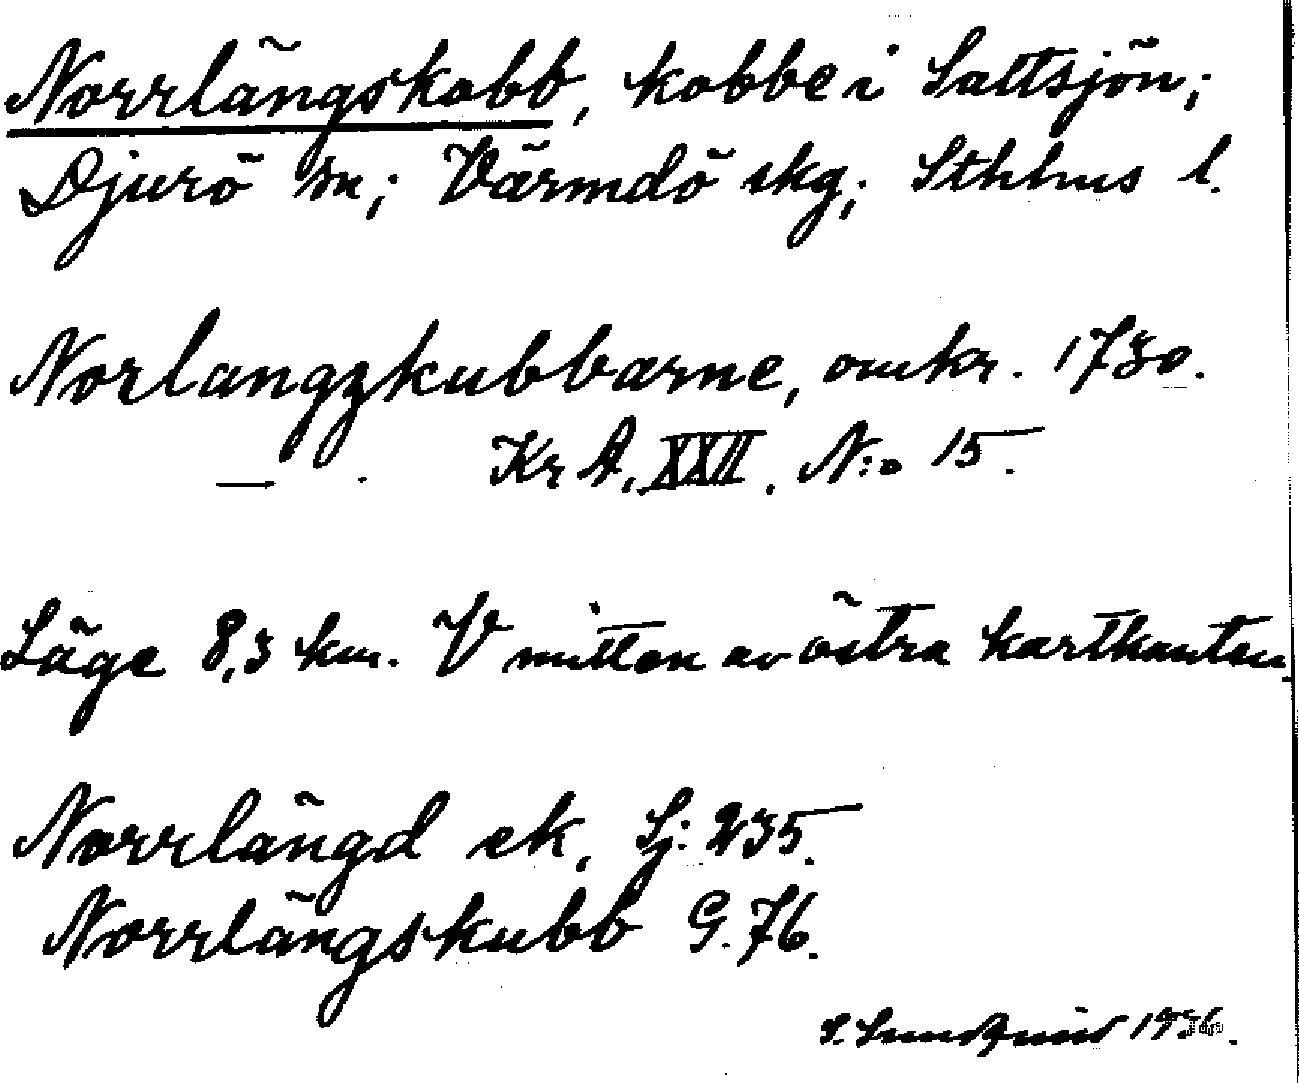 Norrlängskobb, kobbe i Saltsjön;
Djurö sn; Värmdö skg; Sthlms l.
Norlangzkubbarne, omkr. 1730.
— . Kr A, XXII, N:o 15.
Läge 8,3 km. V mitten av östra kartkanten.
Norrlängd ek. Sj: 235.
Norrlängskubb G. 76.
S. Sundqvist 1936.